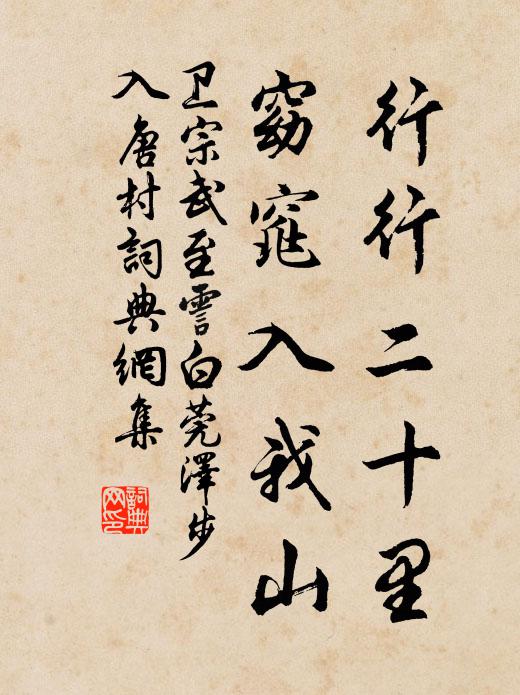 行行二十里
窈窕入我山
卫宗武至霅白莞澤步
入唐村詞典網集
詞典
网印